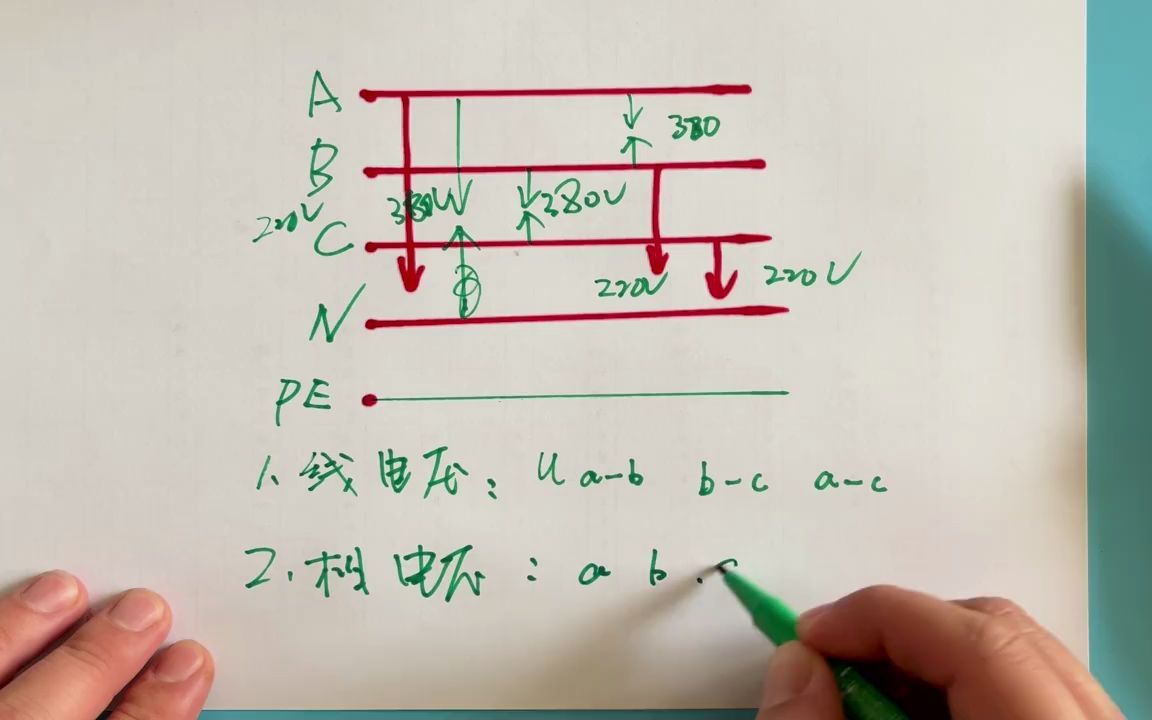 A
380
B
380V 380V
220V C
220V 220V
N
PE
1、线电压： U a-b b-c a-c
2.相电压： a b